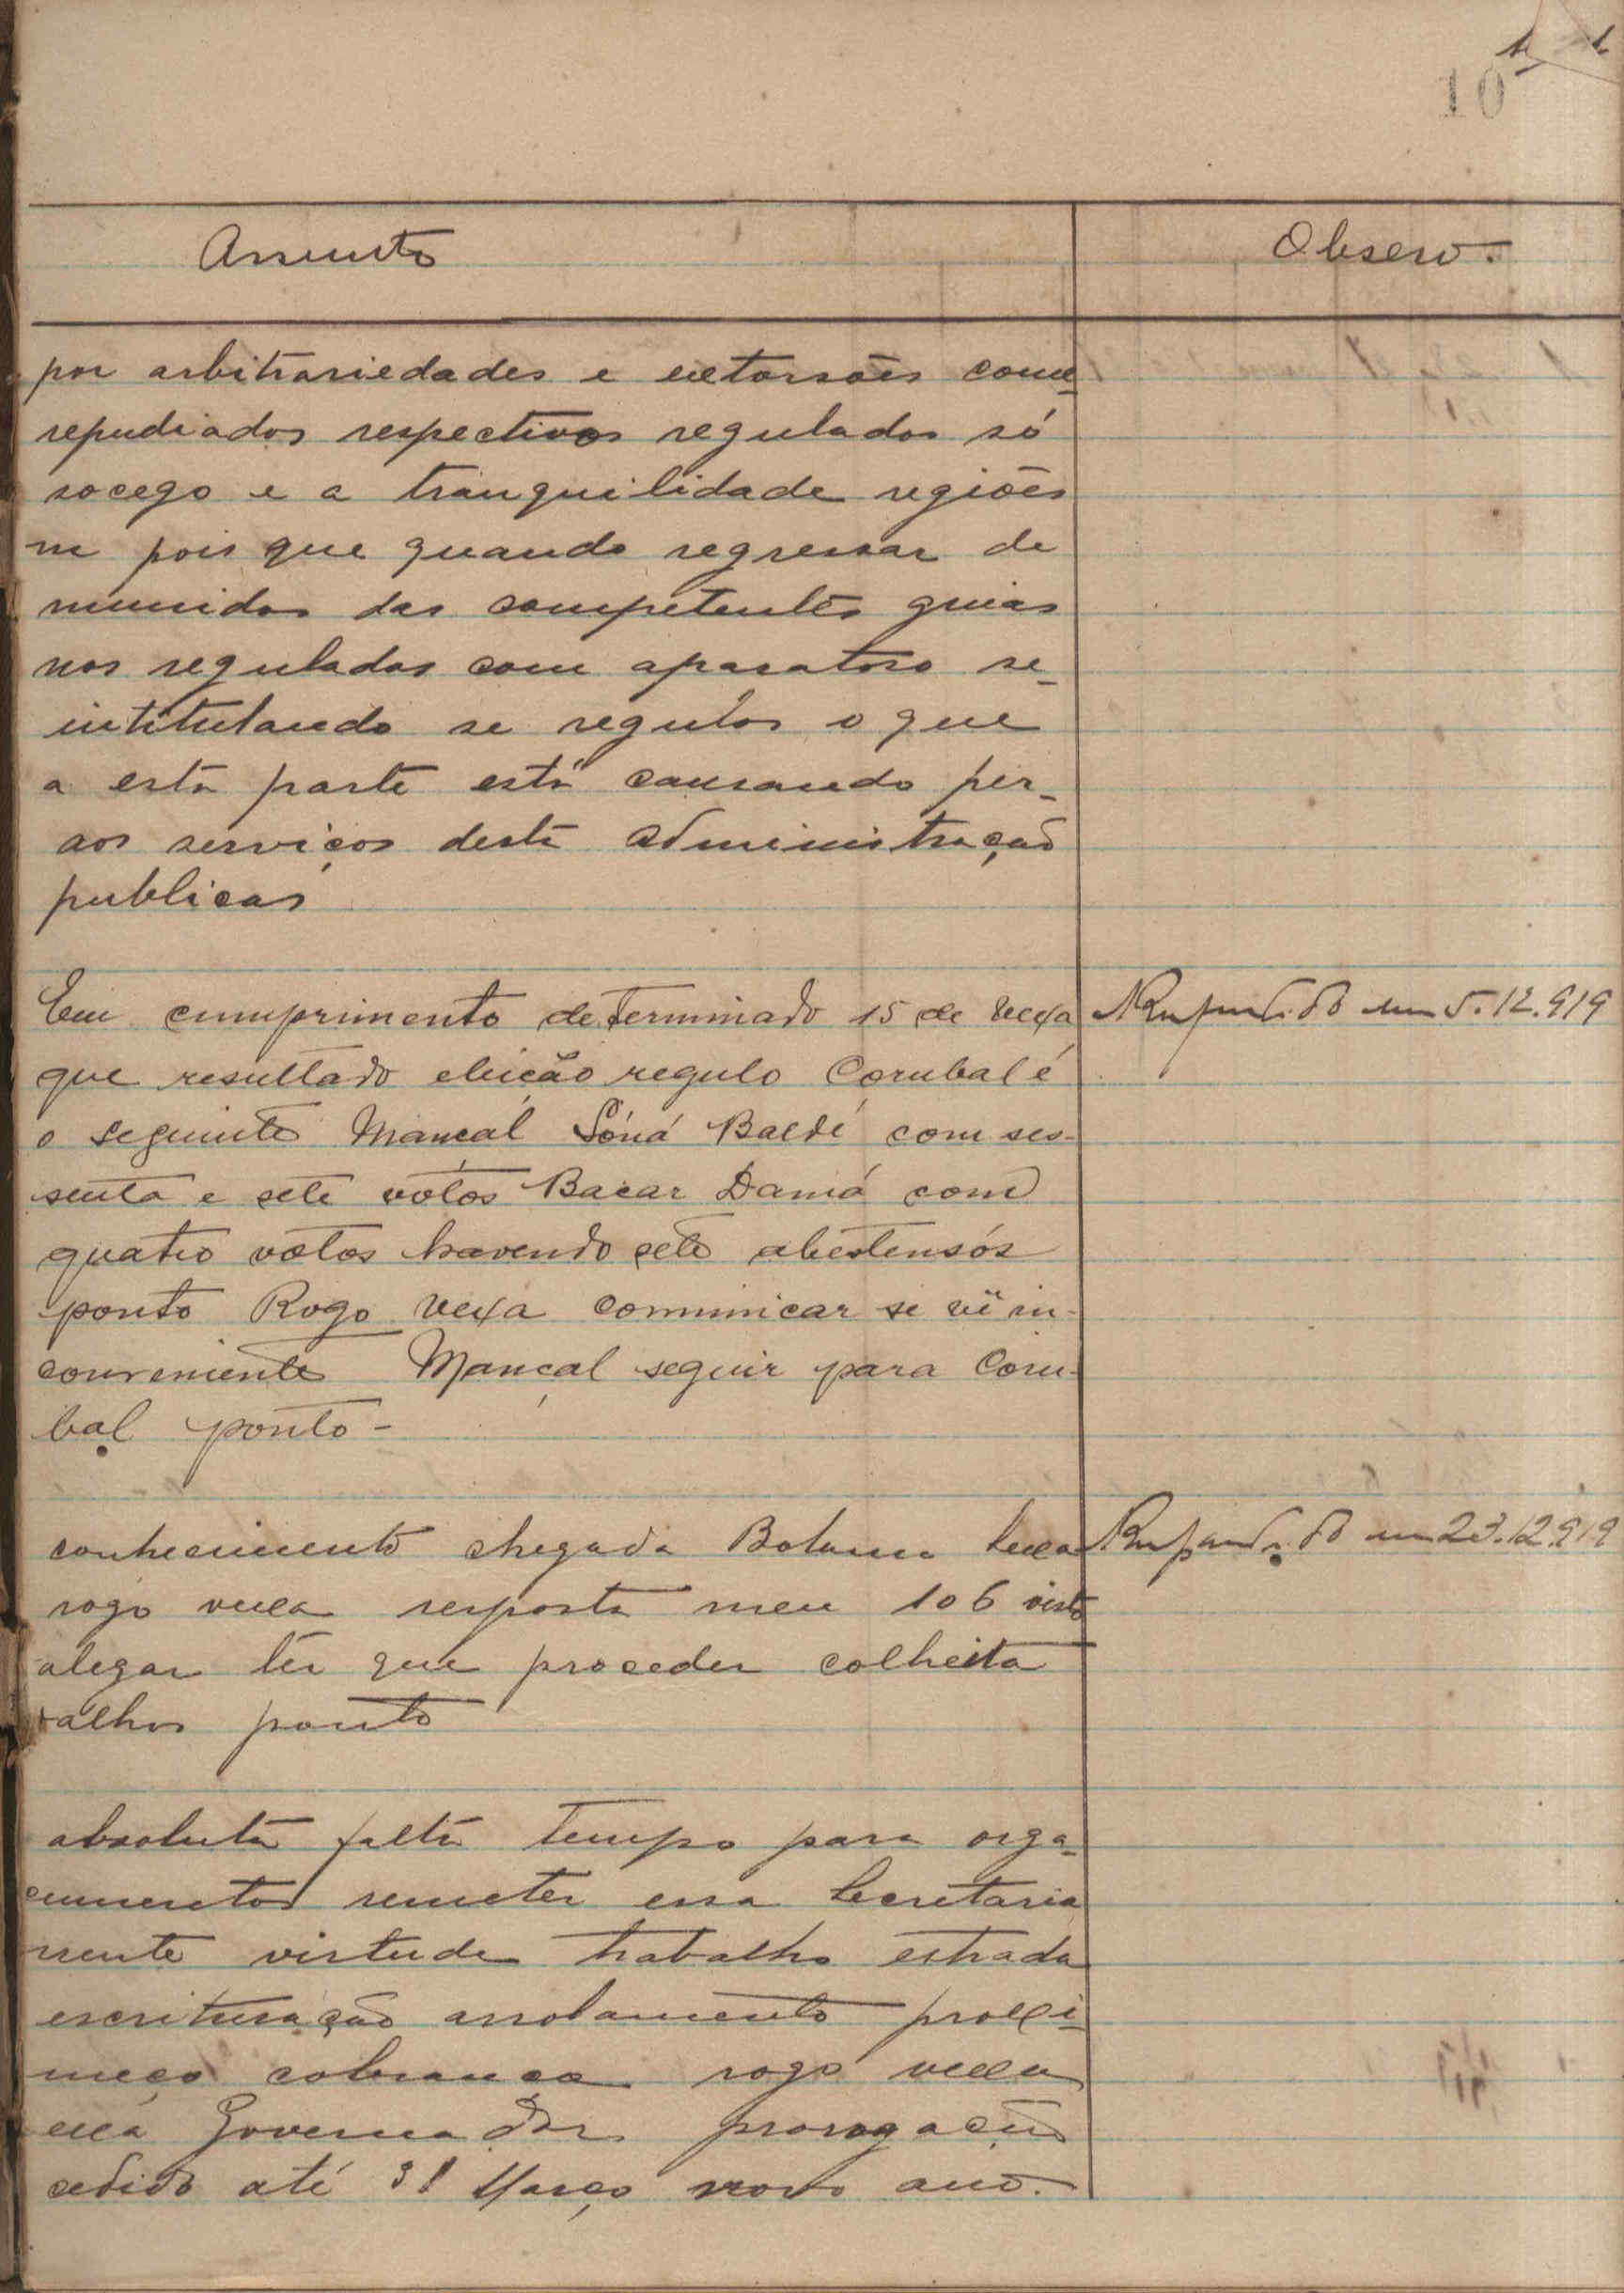 10
Assunto
Observ.
por arbitrariedades e extorsões come-
repudiados respectivos regulados só
socego e a tranquilidade regiões
m pois que quando regressar de
munidos das competentes guias
nos regulados com aparatoso se-
intitulando se regulos o que
a esta parte está causando per-
aos serviços desta administração
publicas
Em cumprimento determinado 15 de vexa
Respondido em 5.12.919
que resultado eleição regulo Corubal é
o seguinte Mançal Sóná Baldé com ses-
senta e sete votos Bacar Damá com
quatro votos havendo sete abestensós
ponto Rogo vexa comunicar se vê in-
conveniente Mançal seguir para Coru-
bal ponto-
conhecimento chegada Bolama
Respondido em 23.12.919
rogo vexa resposta meu 106 visto
alegar ter que proceder colheita
alhos ponto
absoluta falta tempo para orga-
cumentos remeter essa Secretaria
mente virtude trabalho estrada
escrituração arrolamento proxi-
meço cobrança rogo vexa
exa Governador prorogação
cedido até 31 Março novo ano.